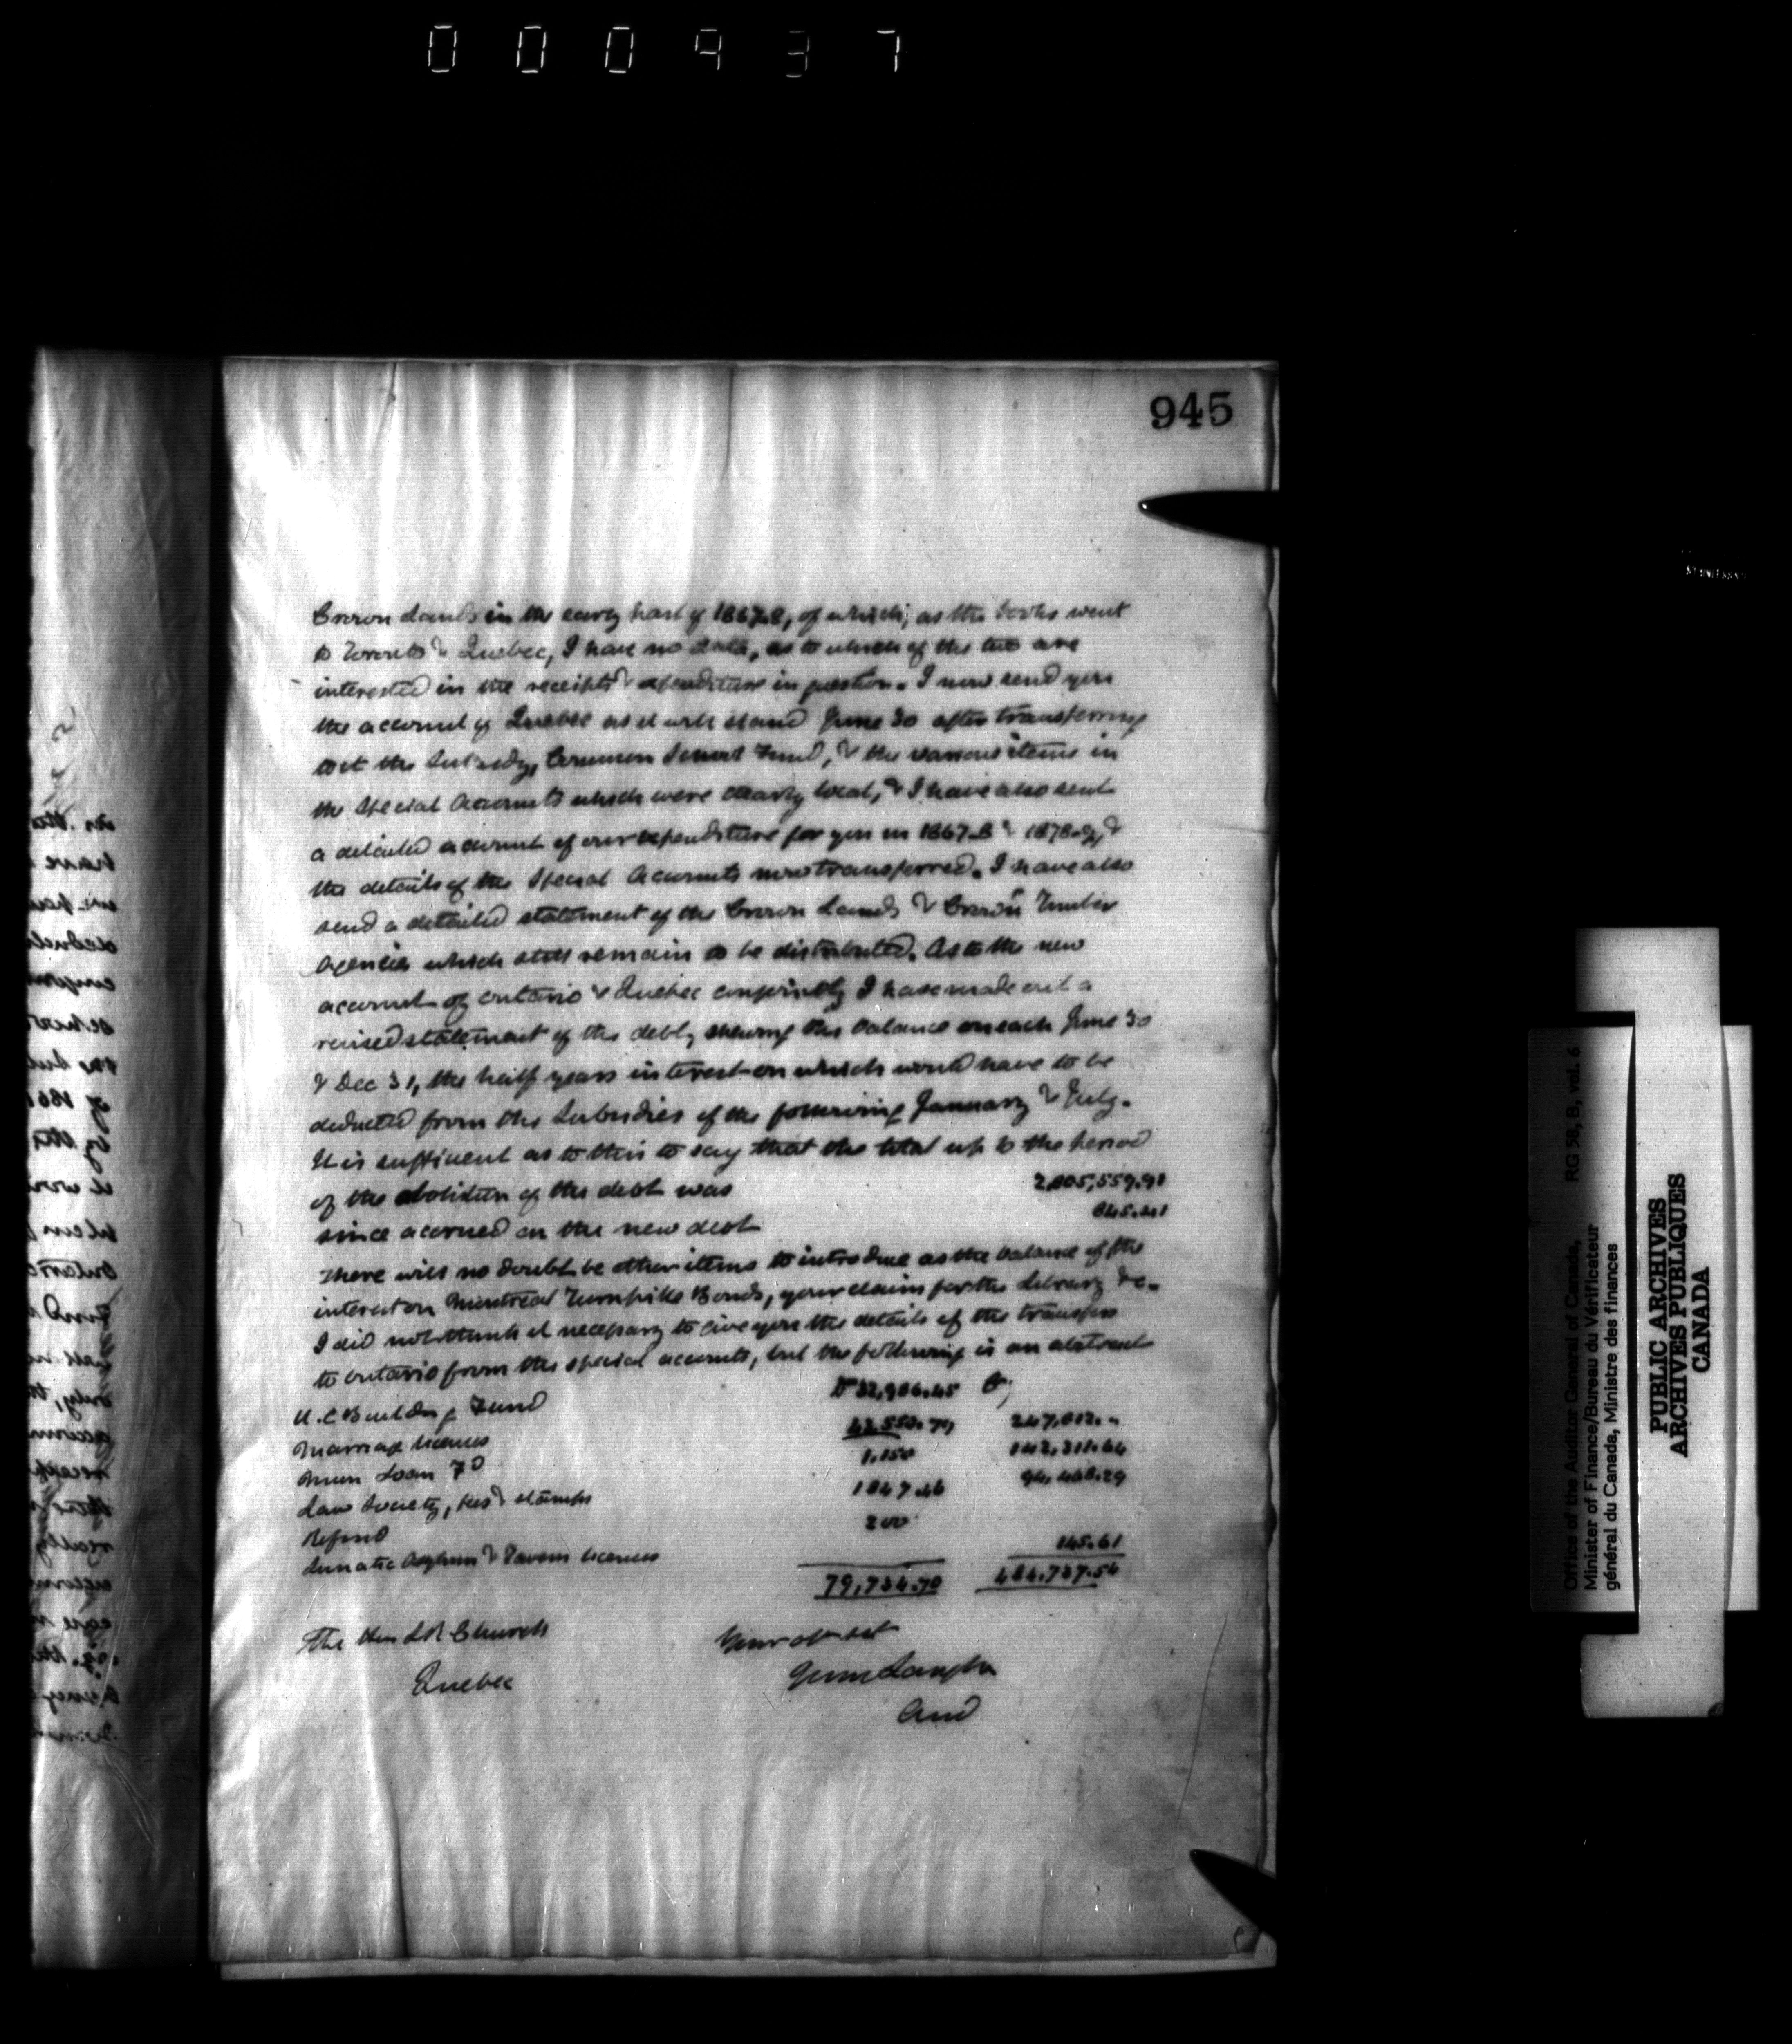 000937
945
Crown Lands in the early part of 1867-8, of which, as the books went
to Toronto & Quebec, I have no data, as to which of the two are
interested in the receipts & expenditure in question. I now send you
the account of Quebec as it will stand June 30 after transferring
to it the Subsidy, Common School Fund, & the various items in
the Special Accounts which were clearly local, & I have also sent
a detailed account of our expenditure for you in 1867-8 & 1878-9, &
the details of the Special Accounts now transferred. I have also
send a detailed statement of the Crown Lands & Crown Timber
Agencies which still remain to be distributed. As to the new
account of Ontario & Quebec conjointly I have made out a
revised statement of the debt, shewing the balance on each June 30
& Dec 31, the half years interest on which would have to be
deducted from the Subsidies of the following January & July.
It is sufficient as to this to say that the total up to the period
of the abolition of the debt was 2,005,559.91
since accrued on the new debt 845.41
There will no doubt be other items to introduce as the balance of the
interest on Montreal Turnpike Bonds, your claim for the Library &c.
I did not think it necessary to give you the details of the transfers
to Ontario from the special accounts, but the following is an abstract
U.C Building Fund Dr 32,986.45 Cr
Marriage licenses 42,550.79 247,812.-
Mun Loan Fd 1.150 142,311.64
Law Society, fees & stamps 1847.46 94,468.29
Refund 200
Lunatic Asylum & Tavern licenses 145.61
79,734.70 484,737.54
The Hon L R Church
Quebec
Your ob set
John Langton
Aud
Office of the Auditor General of Canada, RG 58, B, vol. 6
Minister of Finance/Bureau du Vérificateur
général du Canada, Ministre des finances
PUBLIC ARCHIVES
ARCHIVES PUBLIQUES
CANADA